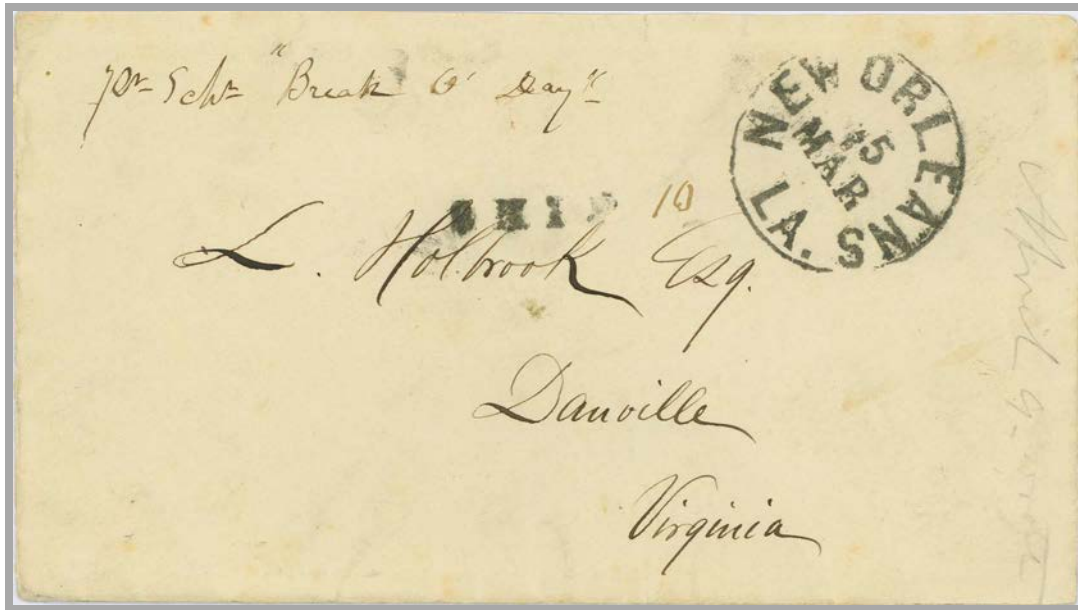 pr Schr "Break O' Day"
NEW ORLEANS
15
MAR
LA.
SHIP 10
L. Holbrook Esq.
Danville
Virginia
April 9